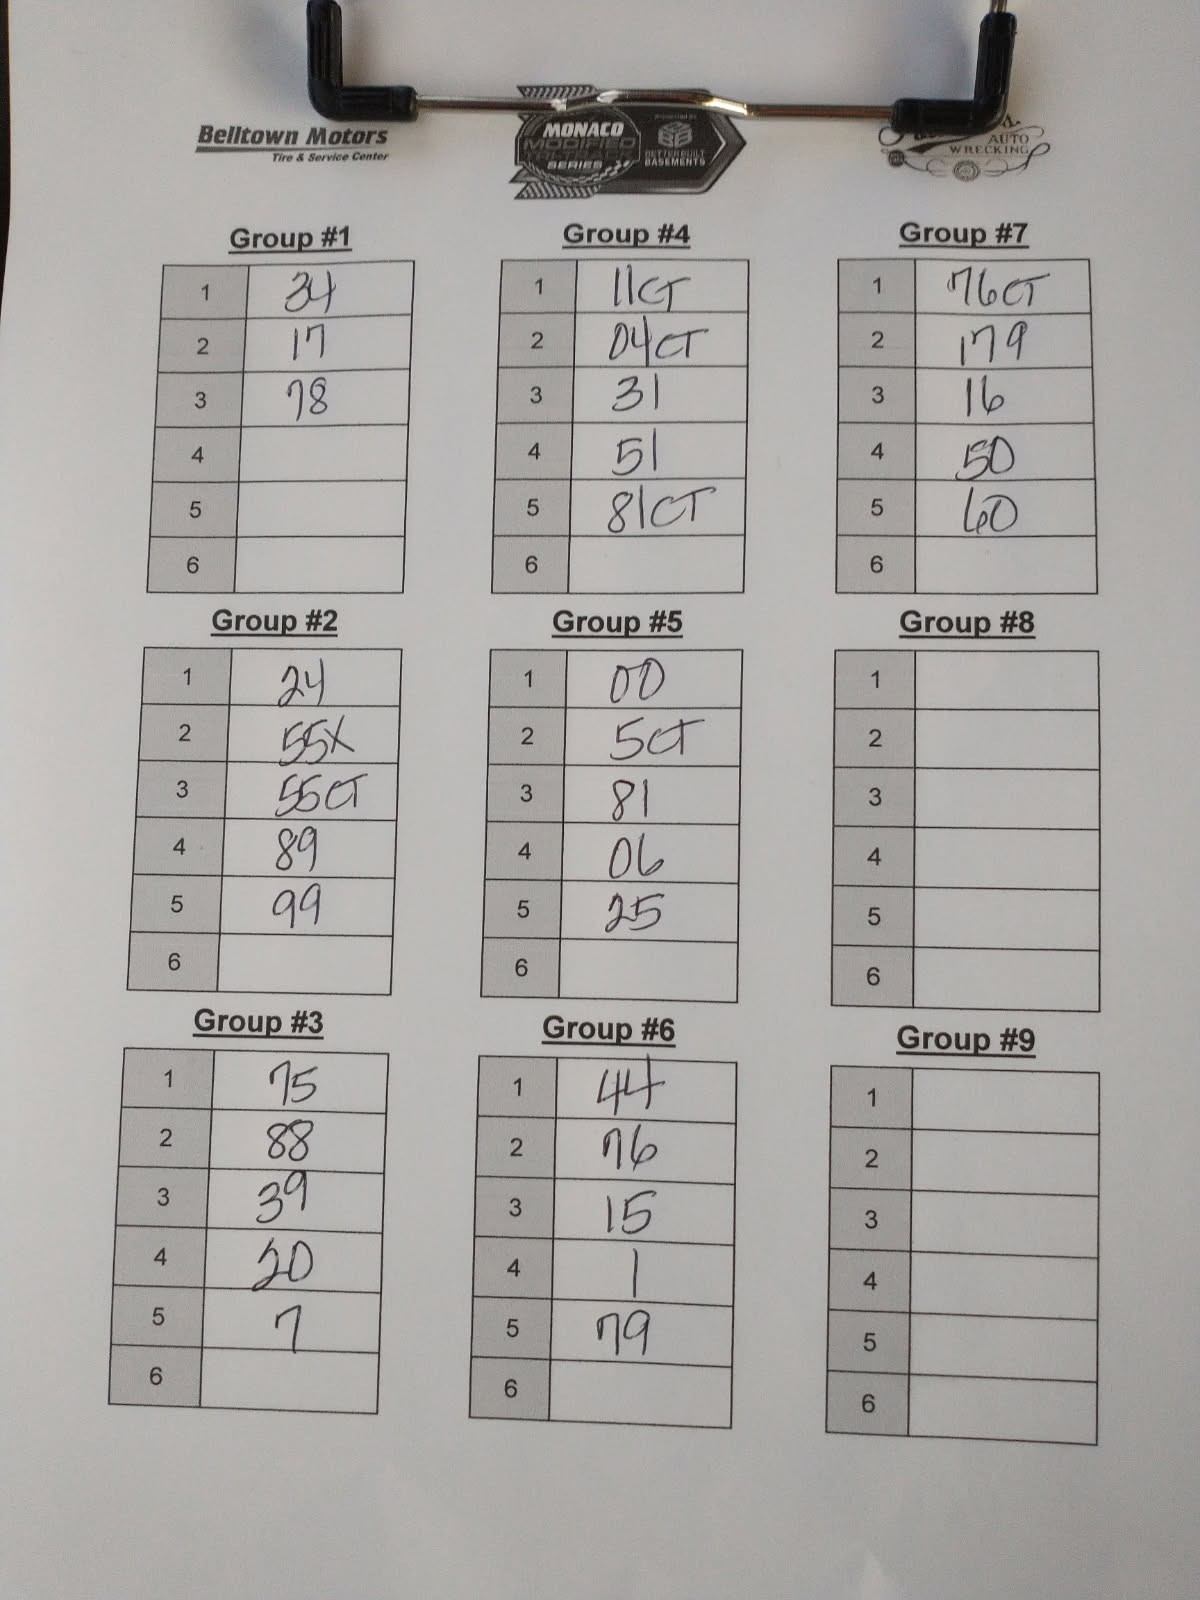 Belltown Motors
Tire & Service Center
MONACO
MODIFIED
SERIES
presented by
BETTER BUILT
BASEMENTS
AUTO
WRECKING
Group #1
1 34
2 17
3 78
4
5
6
Group #2
1 24
2 55X
3 55CT
4 89
5 99
6
Group #3
1 75
2 88
3 39
4 20
5 7
6
Group #4
1 11CT
2 04CT
3 31
4 51
5 81CT
6
Group #5
1 00
2 5CT
3 81
4 06
5 25
6
Group #6
1 44
2 76
3 15
4 1
5 79
6
Group #7
1 76CT
2 179
3 16
4 50
5 60
6
Group #8
1
2
3
4
5
6
Group #9
1
2
3
4
5
6